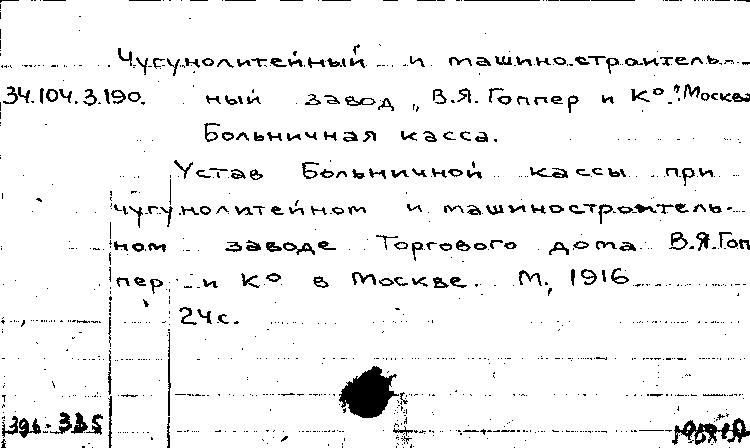 Чугунолитейный и машиностроитель-
34.104.3.190. ный завод „В.Я. Гоппер и К°." Москва
Больничная касса.
Устав Больничной кассы при
чугунолитейном и машиностроитель-
ном заводе Торгового дома В.Я. Гоп
пер и К° в Москве. М., 1916
24с.
396-335